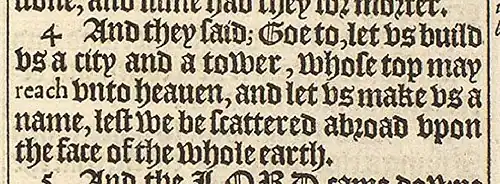 stone, and slime had they for morter.
4 And they said; Goe to, let vs build
vs a city and a tower, whose top may
reach vnto heauen, and let vs make vs a
name, lest we be scattered abroad vpon
the face of the whole earth.
5 And the LORD came downe